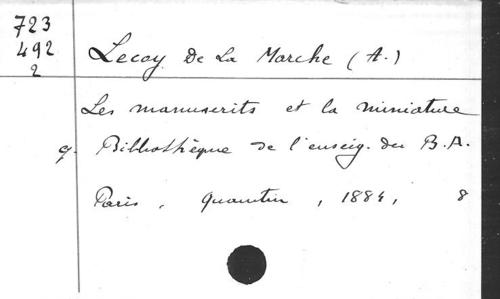 723
492
2
Lecoy De La Marche (A.)
Les manuscrits et la miniature
q. Bibliothèque de l'enseig. des B.A.
Paris, Quantin, 1884, 8